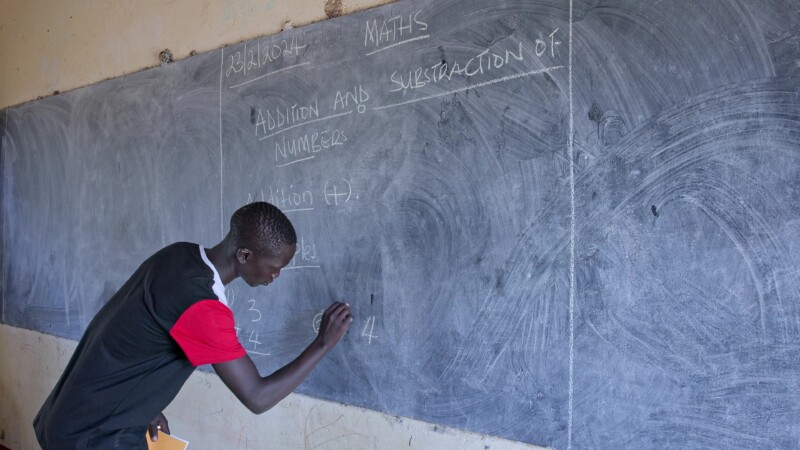 23/2/2024 MATHS
ADDITION AND SUBSTRACTION OF
NUMBERS
Addition (+).
3
4
4